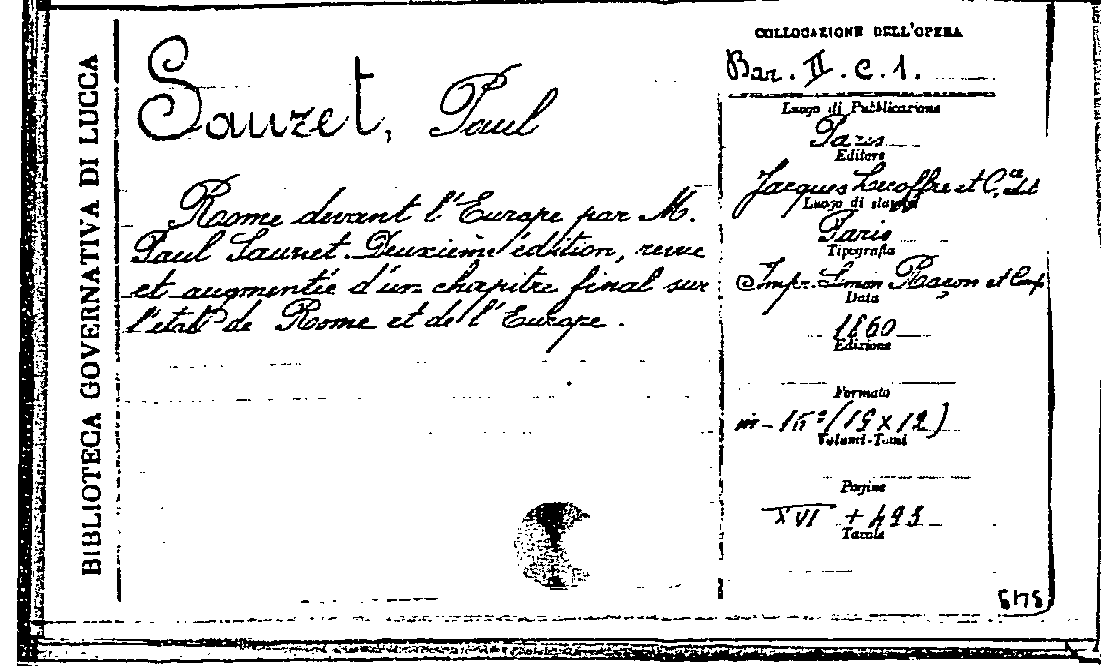 BIBLIOTECA GOVERNATIVA DI LUCCA
Sauzet, Paul
Rome devant l'Europe par M.
Paul Sauzet. Deuxième édition, revue
et augmentée d'un chapitre final sur
l'état de Rome et de l'Europe.
COLLOCAZIONE DELL'OPERA
Bar. II. C. 1.
Luogo di Pubblicazione
Paris
Editore
Jacques Lecoffre et C.ie
Luogo di stampa
Paris
Tipografia
Impr. Simon Raçon et Comp
Data
1860
Edizione
Formato
in-16° (19 x 12)
Volumi-Tomi
Pagine
XVI + 493
Tavole